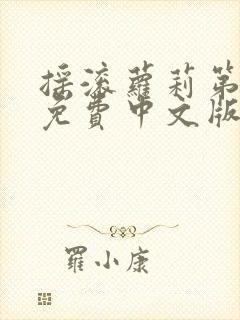 摇滚蘿莉第
免費中文版
羅小康